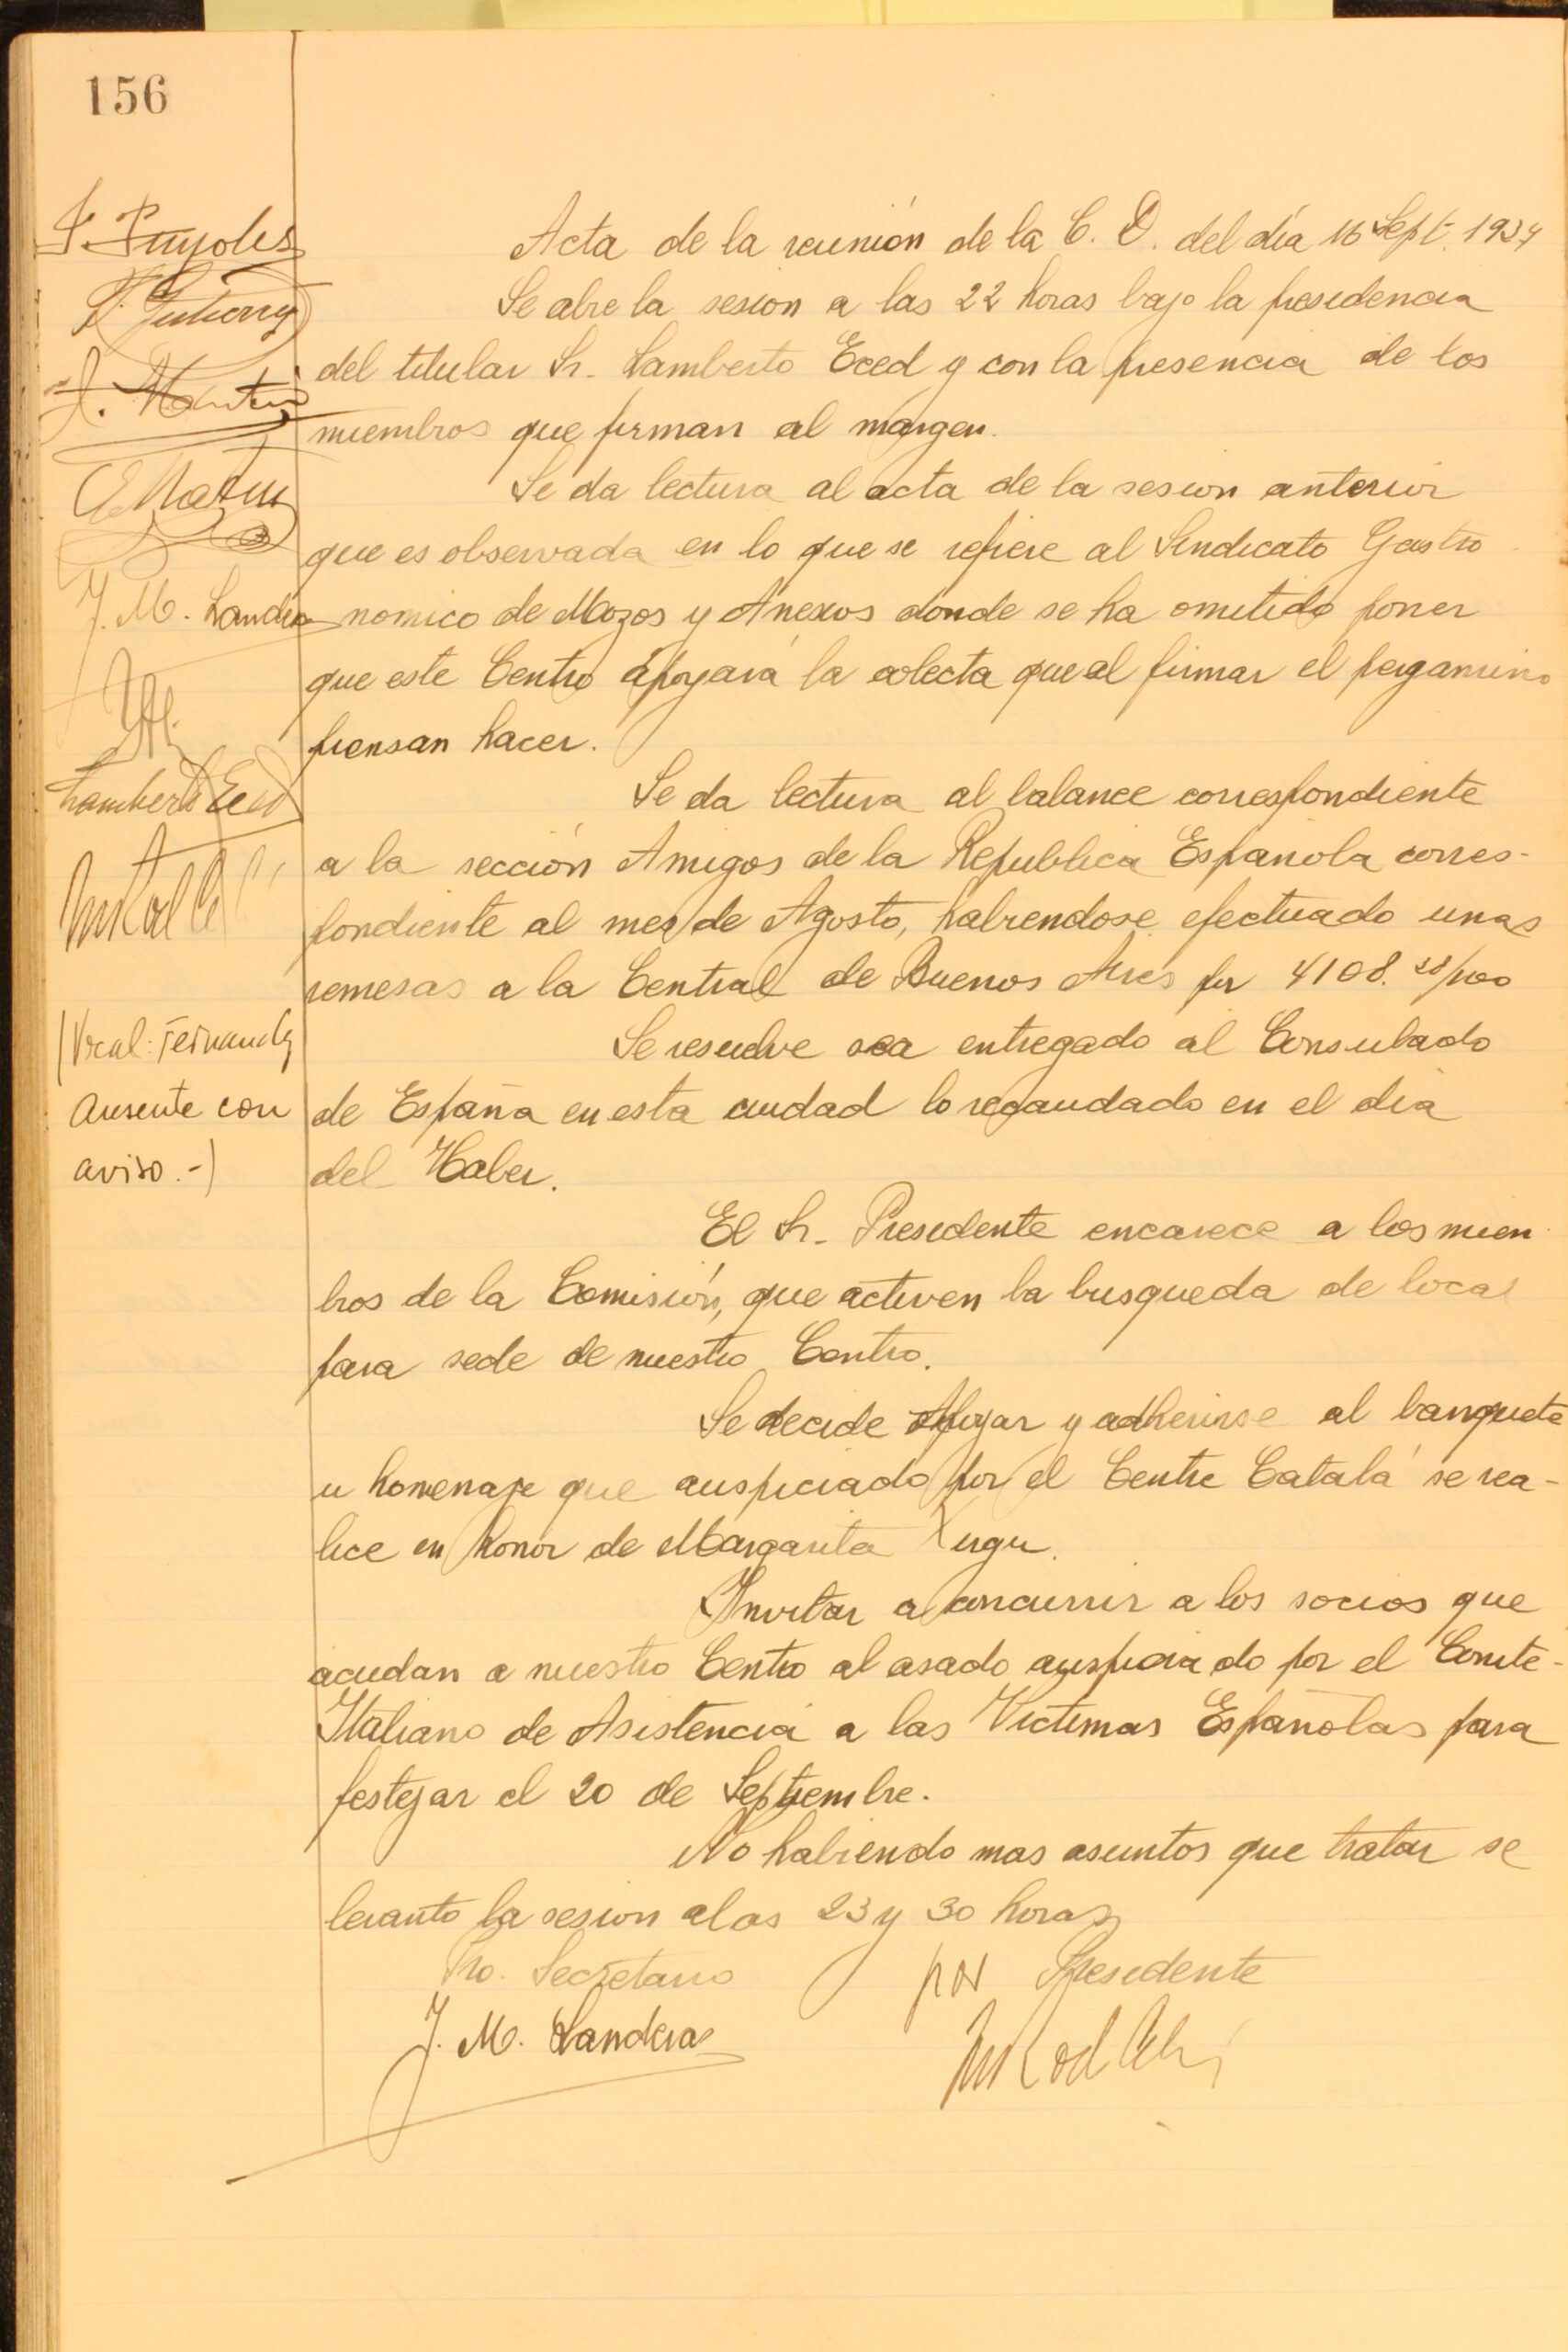 156
F. Puyoles
J. Martin
E Martin
J. M. Landera
Lamberto Eced
(Vocal: Fernandez
Ausente con
aviso.-)
Acta de la reunión de la C. D. del día 16 Sept. 1937
Se abre la sesion a las 22 horas bajo la presidencia
del titular Sr. Lamberto Eced y con la presencia de los
miembros que firman al margen.
Se da lectura al acta de la sesion anterior
que es observada en lo que se refiere al Sindicato Gastro
nomico de Mozos y Anexos donde se ha omitido poner
que este Centro apoyará la colecta que al firmar el pergamino
piensan hacer.
Se da lectura al balance correspondiente
a la sección Amigos de la Republica Española corres-
pondiente al mes de Agosto, habiendose efectuado unas
remesas a la Central de Buenos Aires por 4108.
Se resuelve sea entregado al Consulado
de España en esta ciudad lo recaudado en el dia
del Haber.
El Sr. Presidente encarece a los miem
bros de la Comisión, que activen la busqueda de local
para sede de nuestro Centro.
Se decide apoyar y adherirse al banquete
u homenaje que auspiciado por el Centre Catalá se rea-
lice en honor de Margarita Xirgu.
Invitar a concurrir a los socios que
acudan a nuestro Centro al asado auspiciado por el Comite-
Italiano de Asistencia a las Victimas Españolas para
festejar el 20 de Septiembre.
No habiendo mas asuntos que tratar se
levanto la sesion a las 23 y 30 horas
Pro. Secretario por Presidente
J. M. Landeras